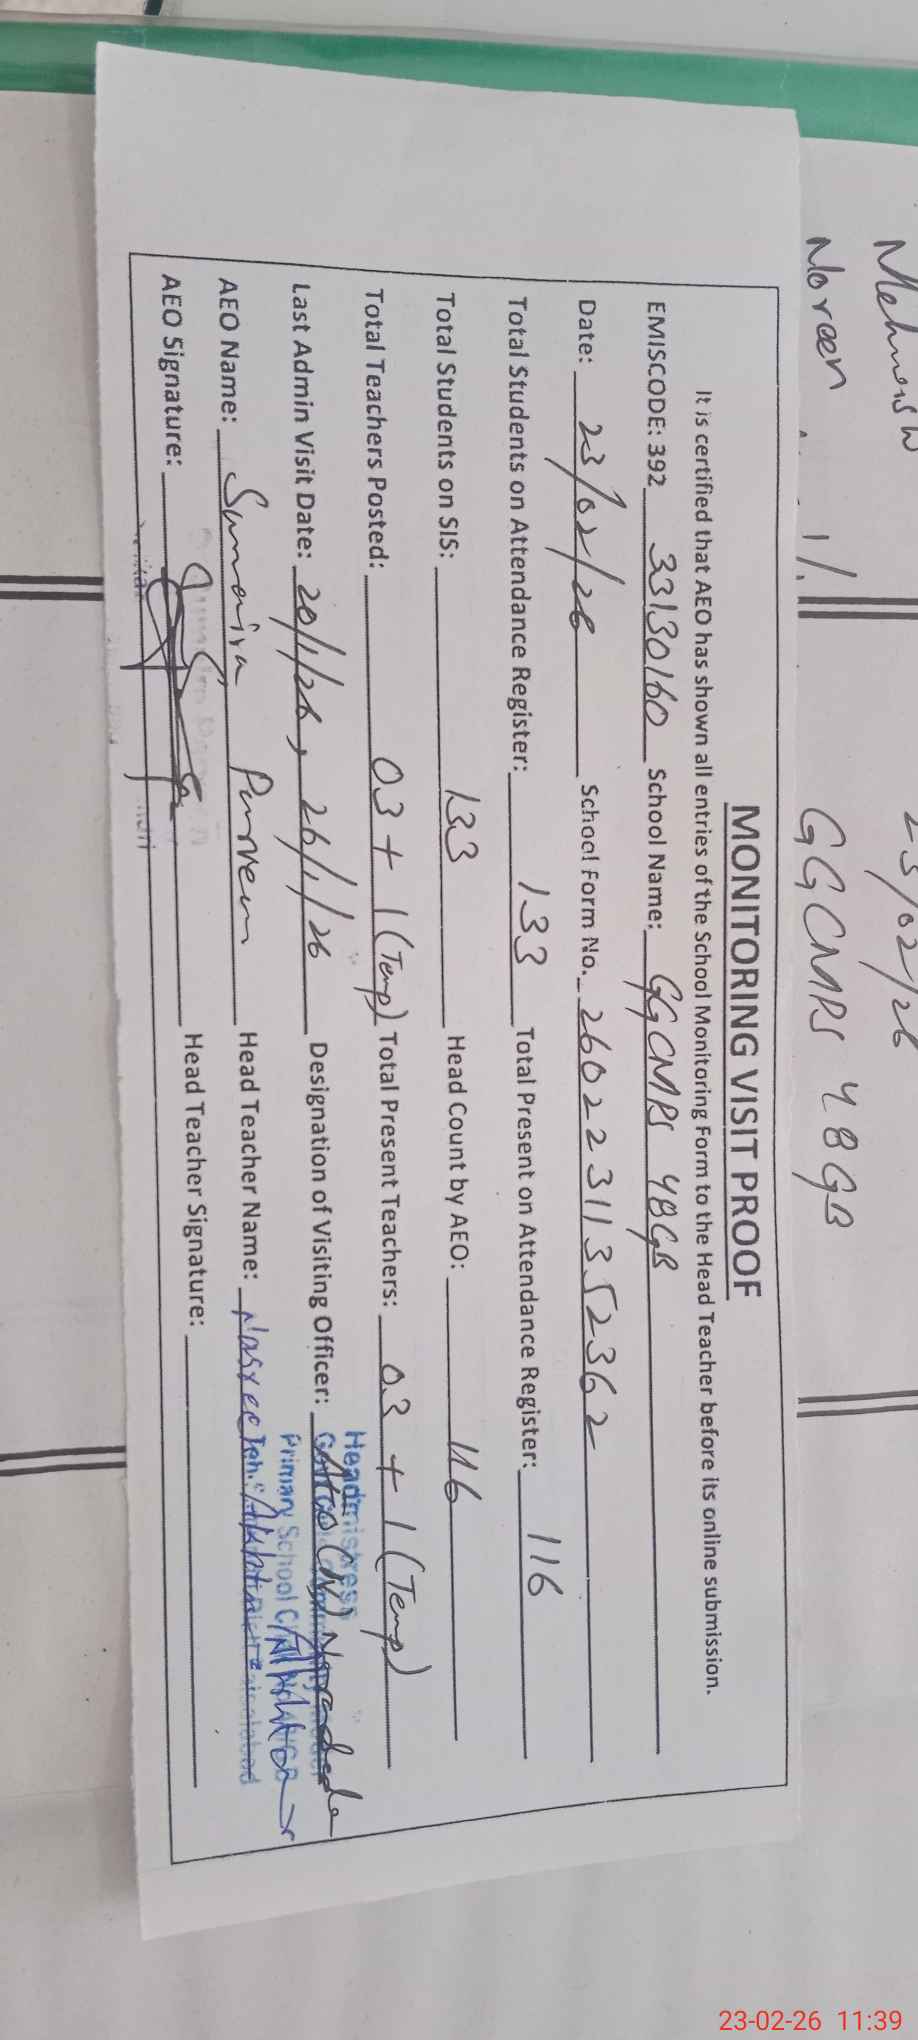 Mehwish 23/02/26
Noreen 11. GGCMPS 48GB
MONITORING VISIT PROOF
It is certified that AEO has shown all entries of the School Monitoring Form to the Head Teacher before its online submission.
EMISCODE: 392 33130160 School Name: GGCMPS 48GB
Date: 23/02/26 School Form No. 26022311352362
Total Students on Attendance Register: 133 Total Present on Attendance Register: 116
Total Students on SIS: 133 Head Count by AEO: 116
Total Teachers Posted: 03 + 1 (Temp) Total Present Teachers: 03 + 1 (Temp)
Last Admin Visit Date: 20/1/26, 26/1/26 Designation of Visiting Officer:
Headmistress
Primary School
AEO Name: Sumaira Parveen Head Teacher Name:
AEO Signature: Head Teacher Signature:
23-02-26 11:39